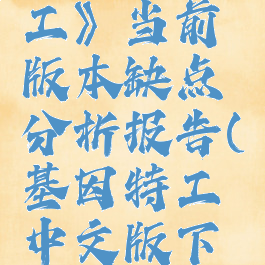 工》当前
版本缺点
分析报告(
基因特工
中文版下